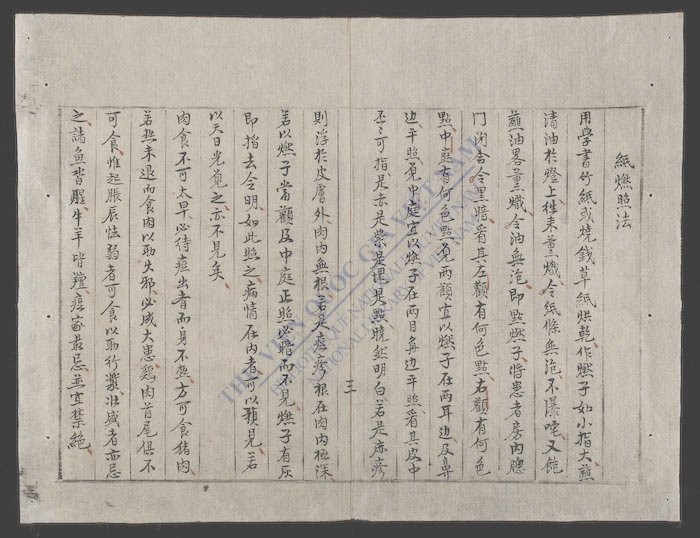 紙燃照法
用學書竹紙或燒錢草紙烘乾作燃子如小指大蘸
清油於燈上往来薰熾令紙條無泡不瀑咤又飽
蘸油畧薰熾令油無泡即點燃子將患者房內䆫
门闭舍令黑暗看其左顴有何色點右顴有何色
點中庭有何色點覓两顴宜以燃子在两耳边及鼻
边平照覓中庭宜以燃子在两目鼻边平照看其皮中
丕可指是赤是紫是塊是點曉然明白若是麻疹
則浮於皮膚外肉內無根若是痘疹根在肉內極深
若以燃子當顴及中庭正照必暗而不見燃子有灰
即指去令明如此照之病情在內者可以預見若
以天日光覓之亦不見矣
肉食不可太早必待痘出者而身不热方可食猪肉
若热未退而食肉以助火邪必成大患鷄肉首尾俱不
可食惟起脹辰怯弱者可食以助行漿壮盛者亦忌
之諸魚皆腥牛羊皆羶痘家最忌並宜禁絶
三
THƯ VIỆN QUỐC GIA VIỆT NAM
NATIONAL LIBRARY OF VIETNAM